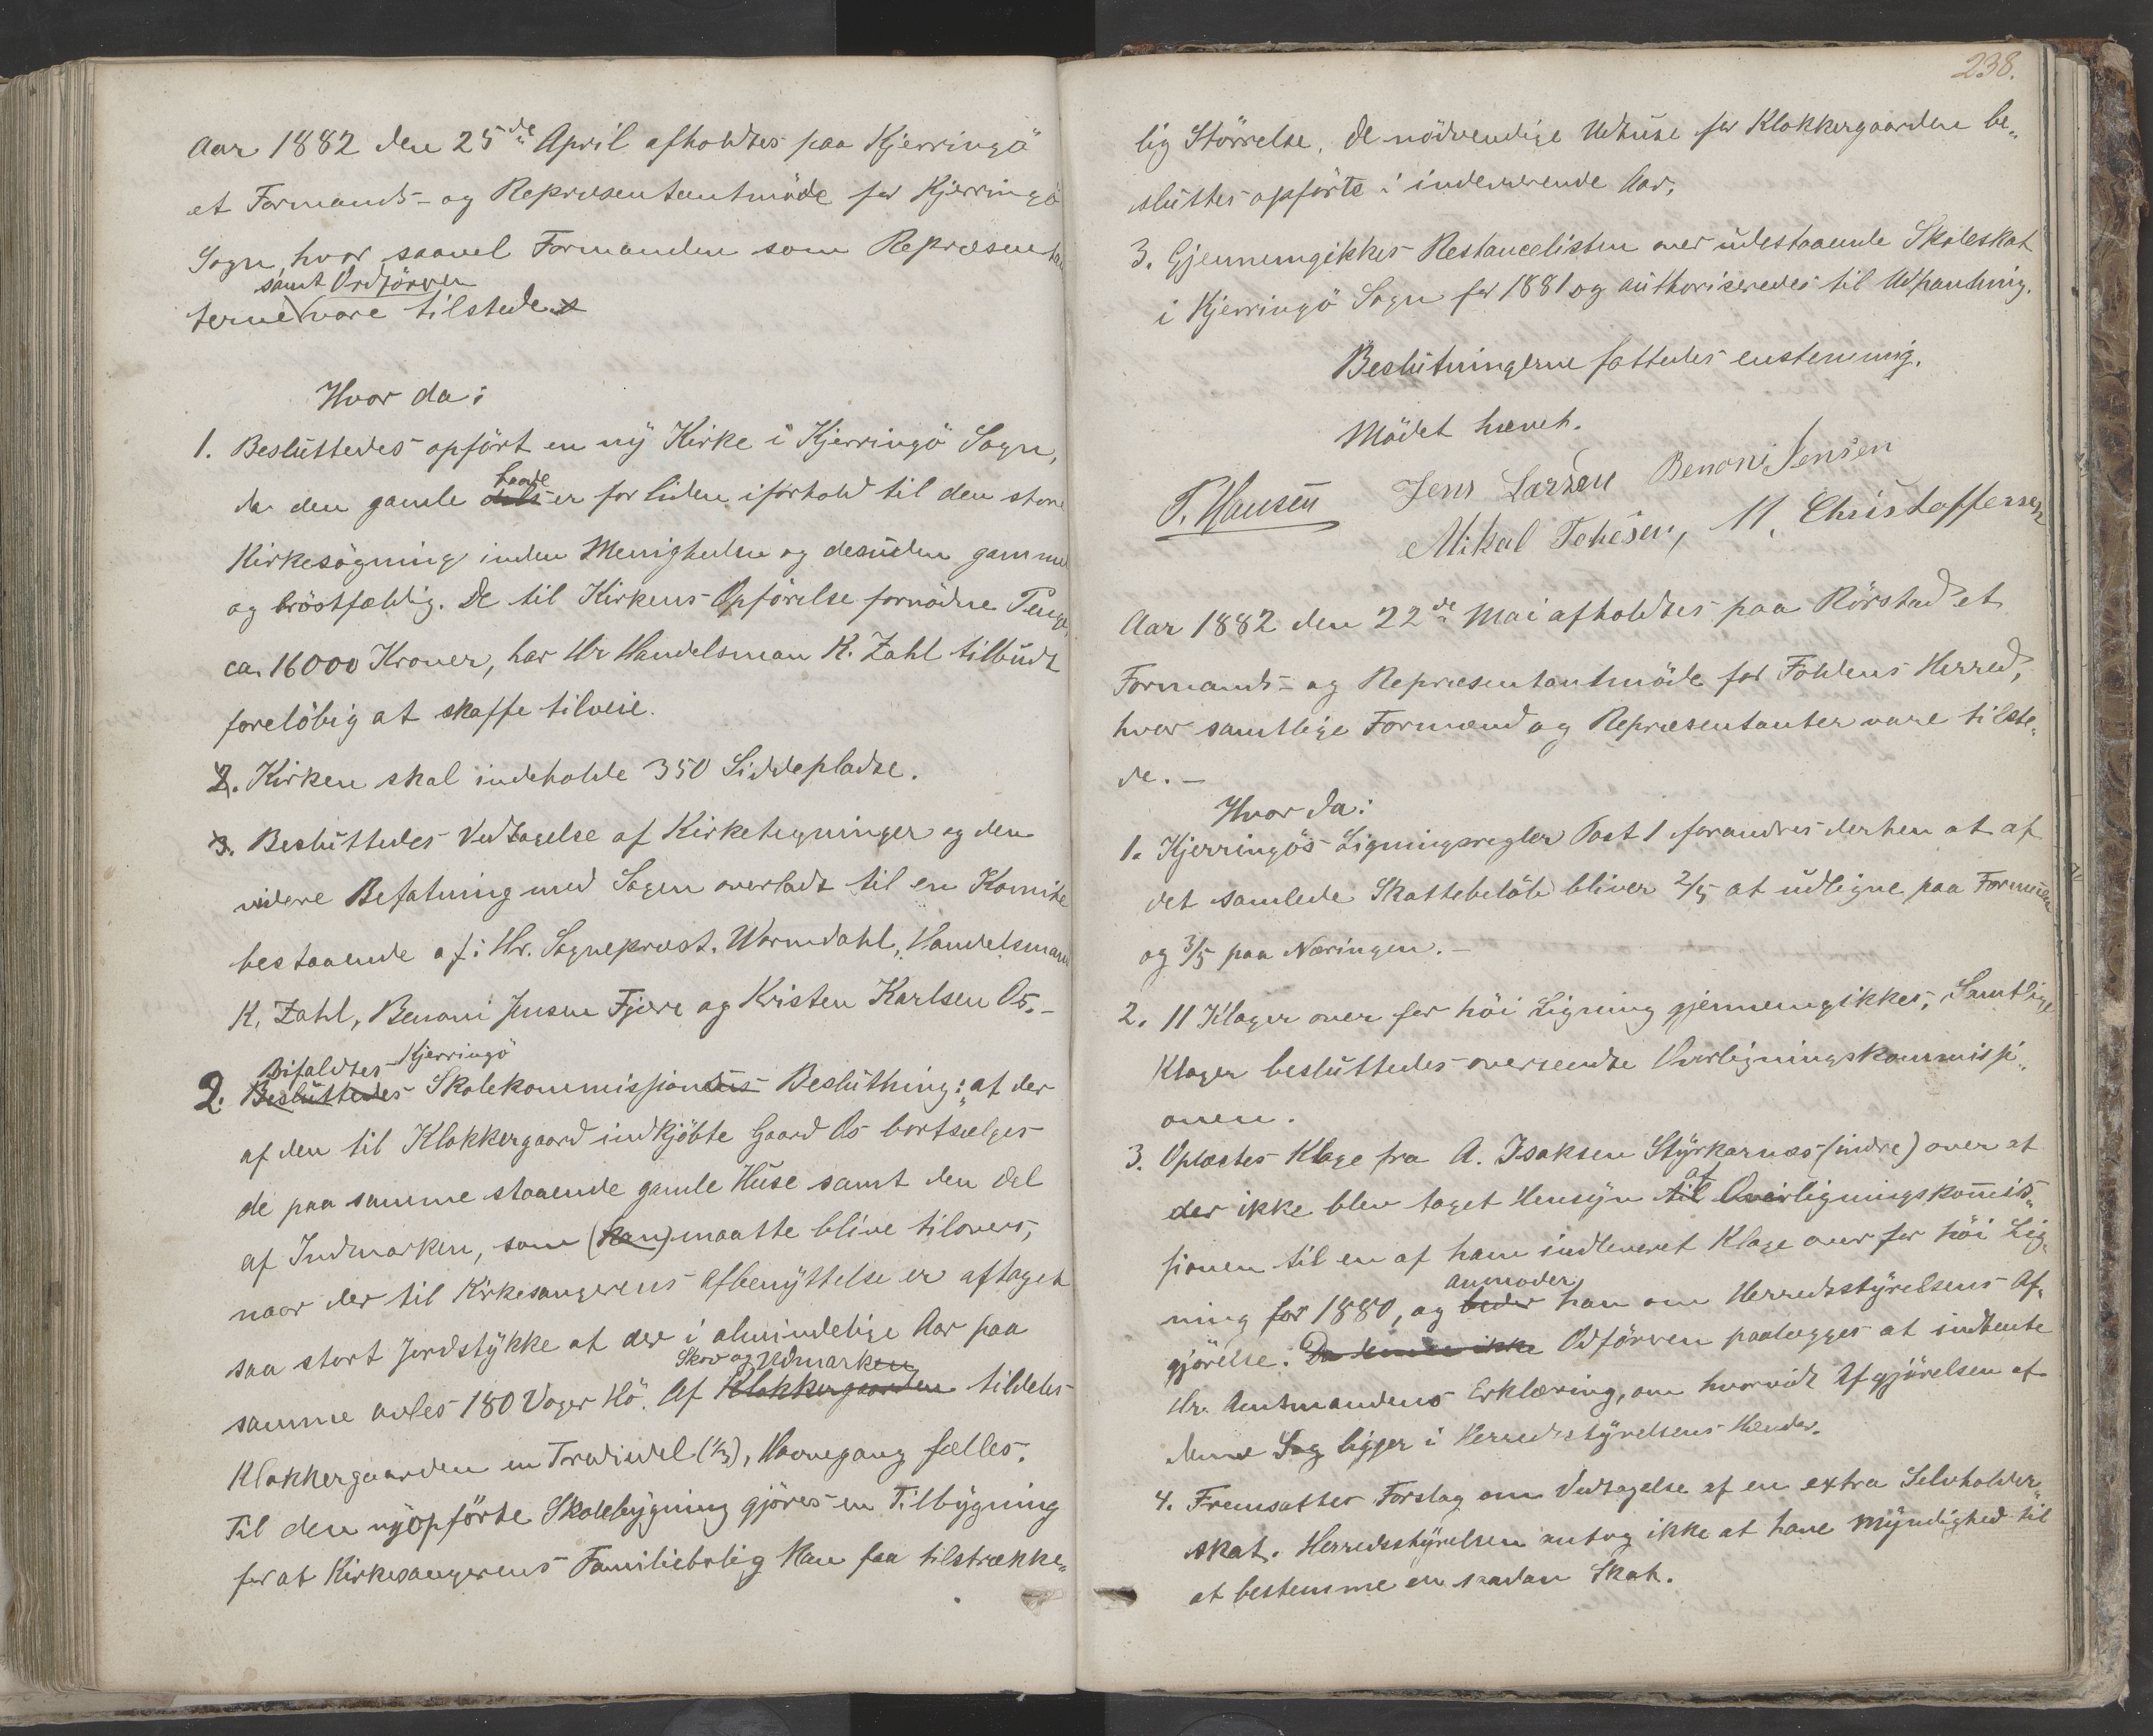 Aar 1882 den 25de April afholdtes paa Kjerringö
et Formands- og Repræsentantmöde for Kjerringö
Sogn, hvor saavel Formanden som Repræsentan
samt Ordförren
terne vare tilstede
Hvor da:
1. Besluttedes opfört en ny Kirke i Kjerringö Sogn,
baade
da den gamle dels er for liden iforhold til den store
Kirkesögning inden Menigheden og desuden gammel
og bröstfældig. De til Kirkens Opförelse fornödne Penge,
ca. 16000 Kroner, har Hr Handelsman K. Zahl tilbudt
forelöbig at skaffe tilveie.
2. Kirken skal indeholde 350 Siddepladse.
3. Besluttedes Vedtagelse af Kirketegninger og den
videre Befatning med Sagen overladt til en Komite
bestaaende af: Hr. Sogneprest. Warmdahl, Handelsmand
K. Zahl, Benoni Jensen Fjære og Kristen Karlsen Os.-
Bifaldtes Kjerringö
2. Besluttedes Skolekommissionens Beslutning: at der
af den til Klokkergaard indkjöbte Gaard Os bortsælges
de paa samme staaende gamle Huse samt den Del
af Indmarken, som (kan) maatte blive tilovers,
naar der til Kirkesangerens Afbenyttelse er aftaget
saa stort Jordstykke at der i almindelige Aar paa
Skov og Udmarken
samme avles 180 Voger Hö. Af Klokkergaarden tildeles
Klokkergaarden en Trediedel (1/3), Havnegang fælles.
Til den nyopförte Skolebygning gjöres en Tilbygning
for at Kirkesangerens Familiebolig kan faa tilstrække-
238.
lig Störrelse. De nödvendige Udhuse for Klokkergaarden be-
sluttes opförte i indeværende Aar.
3. Gjennemgikkes Restancelisten over udestaaende Skoleskat
i Kjerringö Sogn for 1881 og authoriseredes til Udpantning.
Beslutningerne fattedes enstemmig.
Mödet hævet.
T. Hansen Jens Larsen Benoni Jensen
Mikal M. Christoffersen
Aar 1882 den 22de Mai afholdtes paa Rörstad et
Formands- og Repræsentantmöde for Foldens Herred,
hvor samtlige Formænd og Repræsentanter vare tilste-
de. -
Hvor da:
1. Kjerringös Ligningsregler Post 1 forandres derhen at af
det samlede Skattebelöb bliver 2/5 at udligne paa Formuen
og 3/5 paa Næringen. -
2. 11 Klager over for höi Ligning gjennemgikkes. Samtlige
Klager besluttedes oversendte Overligningskommissi-
onen.
3. Oplæstes Klage fra A. Isaksen Styrkarnæs (indre) over at
af
der ikke blev taget Hensyn til Overligningskommis-
sionen til en af ham indleveret Klage over for höi Lig-
anmoder
ning for 1880, og beder han om Herredsstyrelsens Af-
gjörelse. Da kunde ikke Odförren paalægges at indhente
Hr. Amtmandens Erklæring, om hvorvidt Afgjörelsen af
denne Sag ligger i Herredsstyrelsens Hænder.
4. Fremsattes Forslag om Vedtagelse af en extra Selvholder-
skat. Herredsstyrelsen antog ikke at have Myndighed til
at bestemme en saadan Skat.